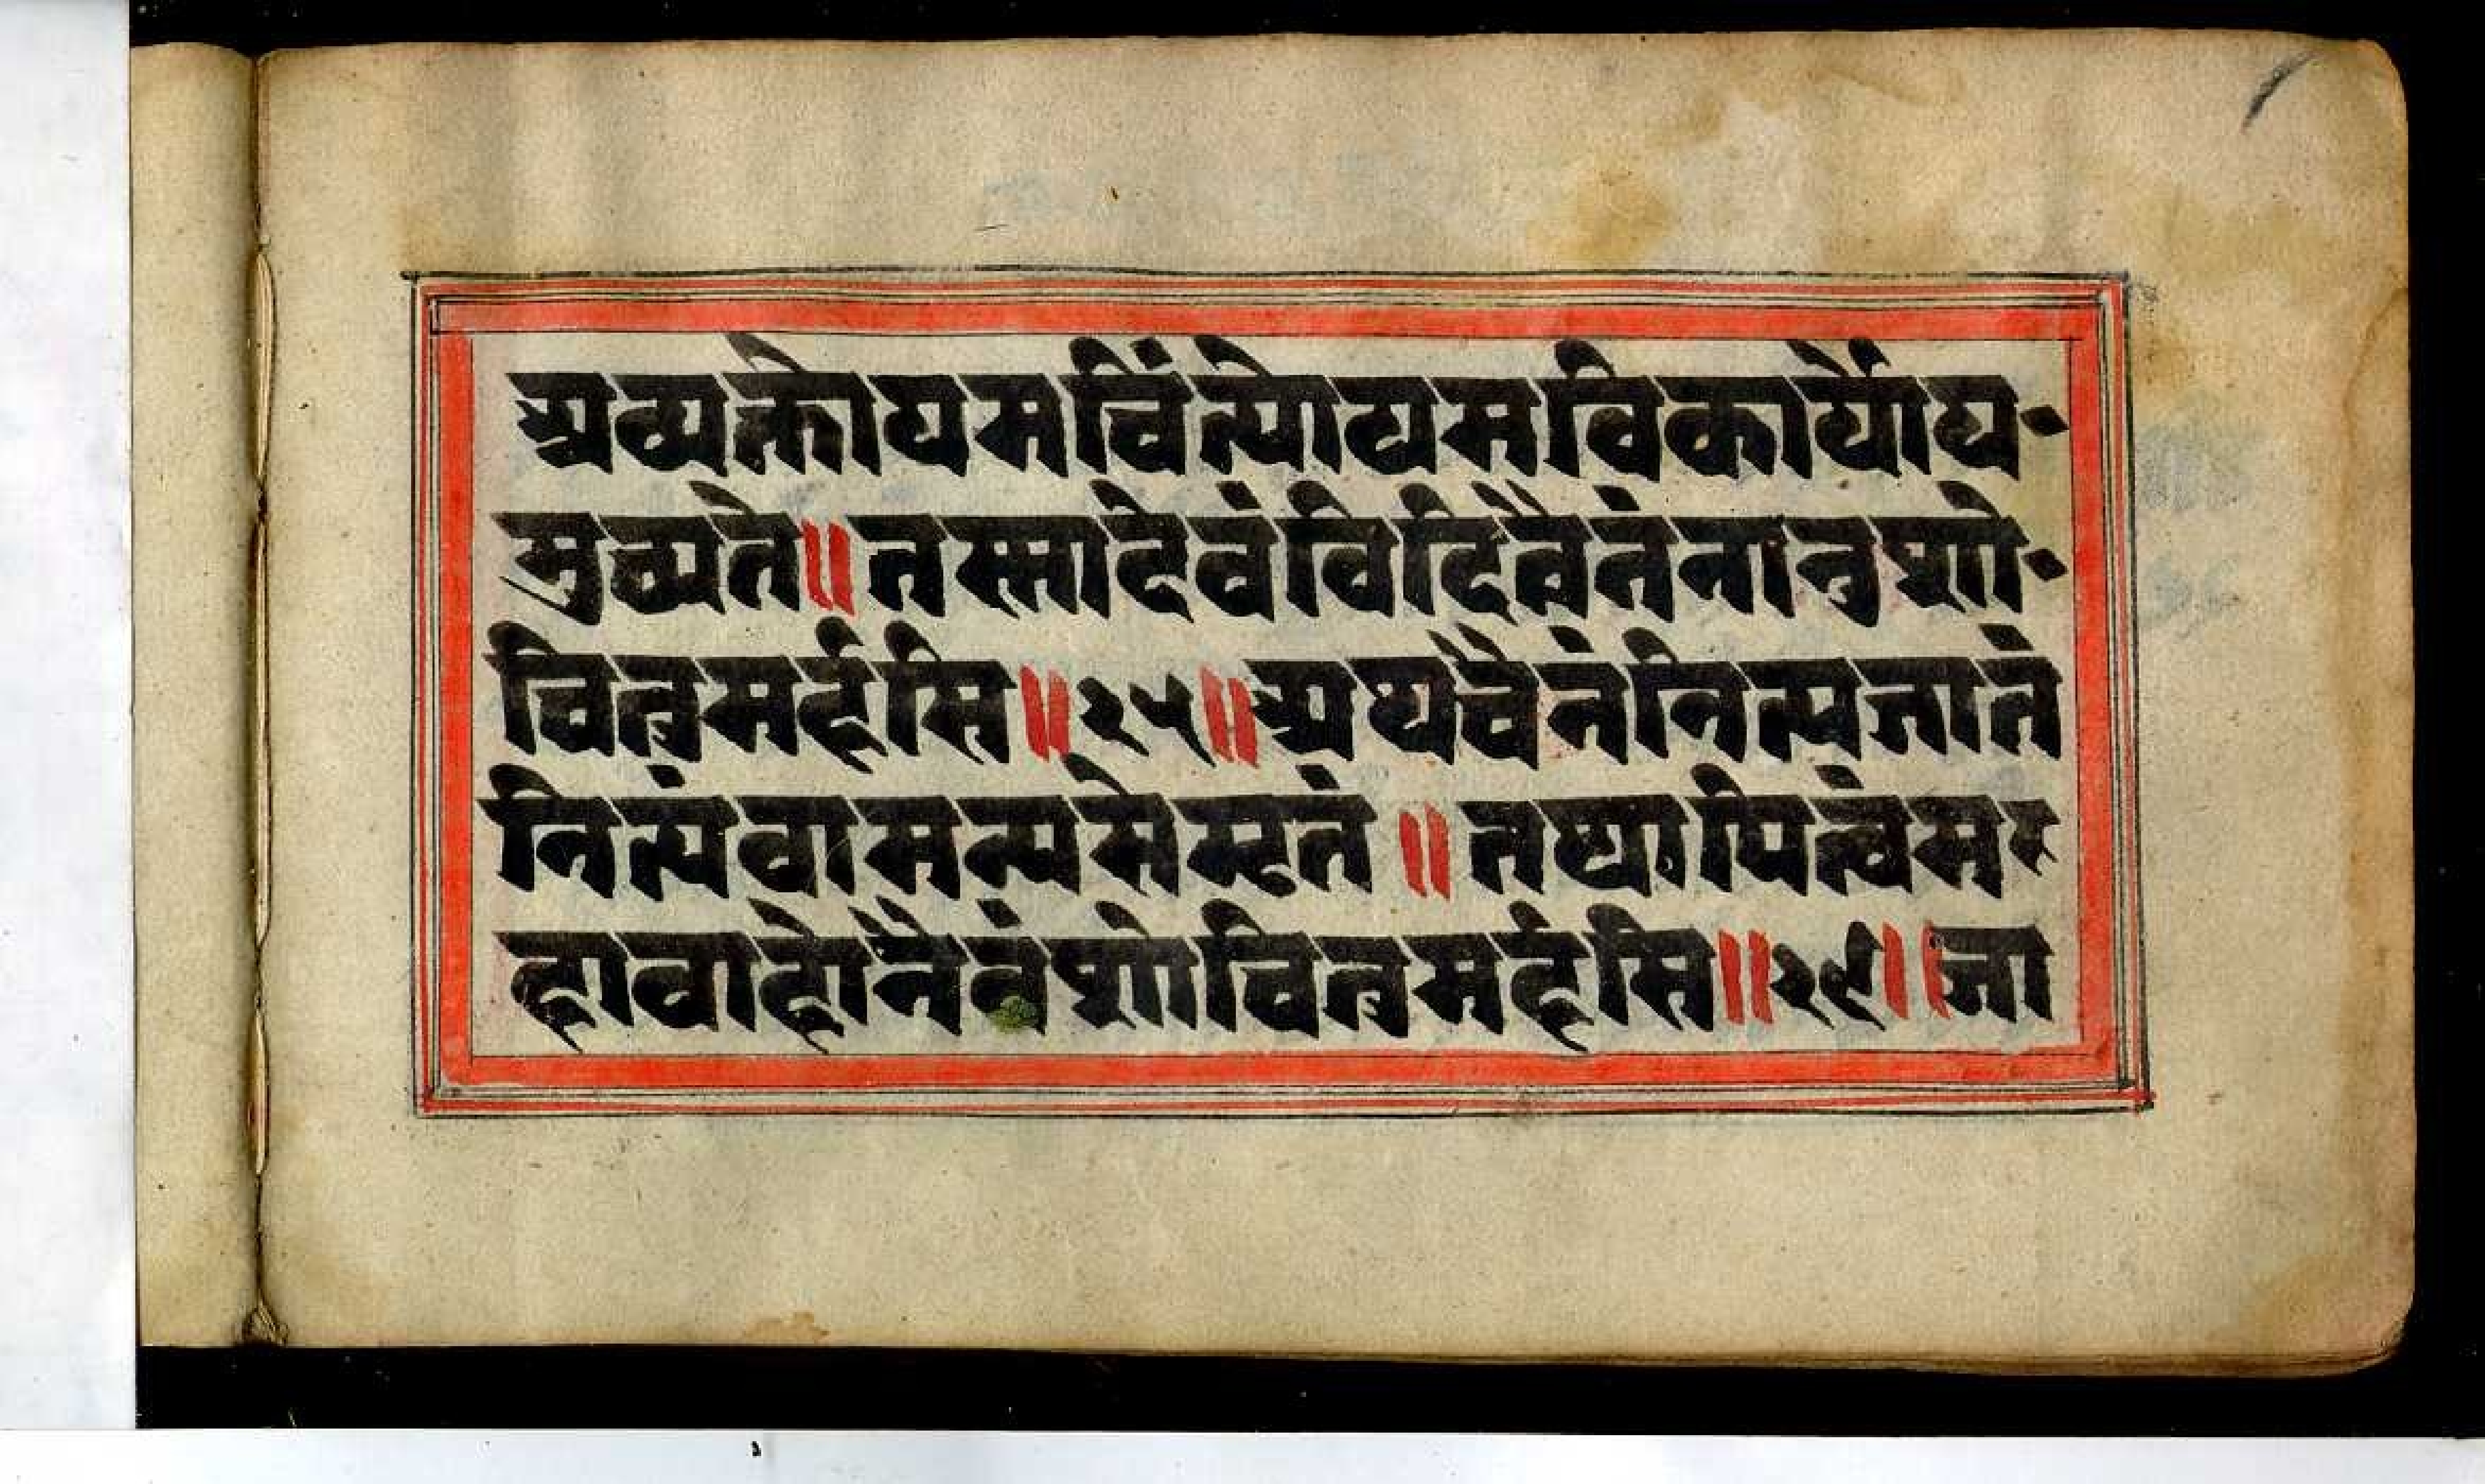 अव्यक्तोयमचिंत्योयमविकार्योय
मुच्यते॥तस्मादेवंविदित्वैनंनानुशो
चितुमर्हसि॥२५॥अथचैनंनित्यजातं
नित्यंवामन्यसेमृतं॥तथापित्वंमह
हावाहोनैवंशोचितुमर्हसि॥२६॥जा